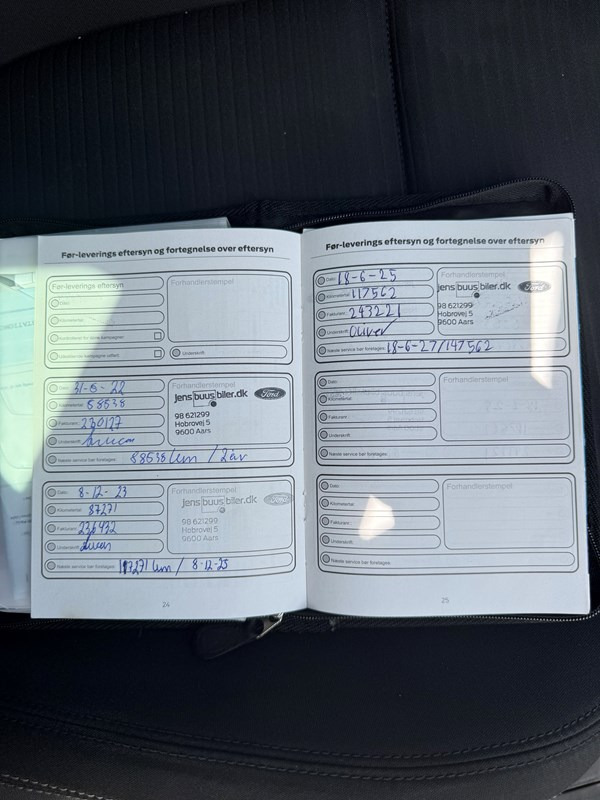 Før-leverings eftersyn og fortegnelse over eftersyn
Før-leverings eftersyn
Forhandlerstempel
Dato:
Kilometertal:
Underskrift
Dato: 31-5-22
Forhandlerstempel
Kilometertal: 58538
jens buus biler.dk
Ford
Fakturanr: 230127
98 621299
Hobrovej 5
9600 Aars
Underskrift:
Næste service bør foretages: 88538 km / 2 år
Dato: 8-12-23
Forhandlerstempel
Kilometertal: 87271
jens buus biler.dk
Ford
Fakturanr: 236432
98 621299
Hobrovej 5
9600 Aars
Underskrift:
Næste service bør foretages: 117271 km / 8-12-25
24
Før-leverings eftersyn og fortegnelse over eftersyn
Dato: 18-6-25
Forhandlerstempel
Kilometertal: 117562
jens buus biler.dk
Ford
Fakturanr: 243221
98 621299
Hobrovej 5
9600 Aars
Underskrift: Oliver
Næste service bør foretages: 18-6-27/147562
Dato:
Forhandlerstempel
Kilometertal:
Fakturanr:
Underskrift:
Næste service bør foretages:
Dato:
Forhandlerstempel
Kilometertal:
Fakturanr:
Underskrift:
Næste service bør foretages:
25